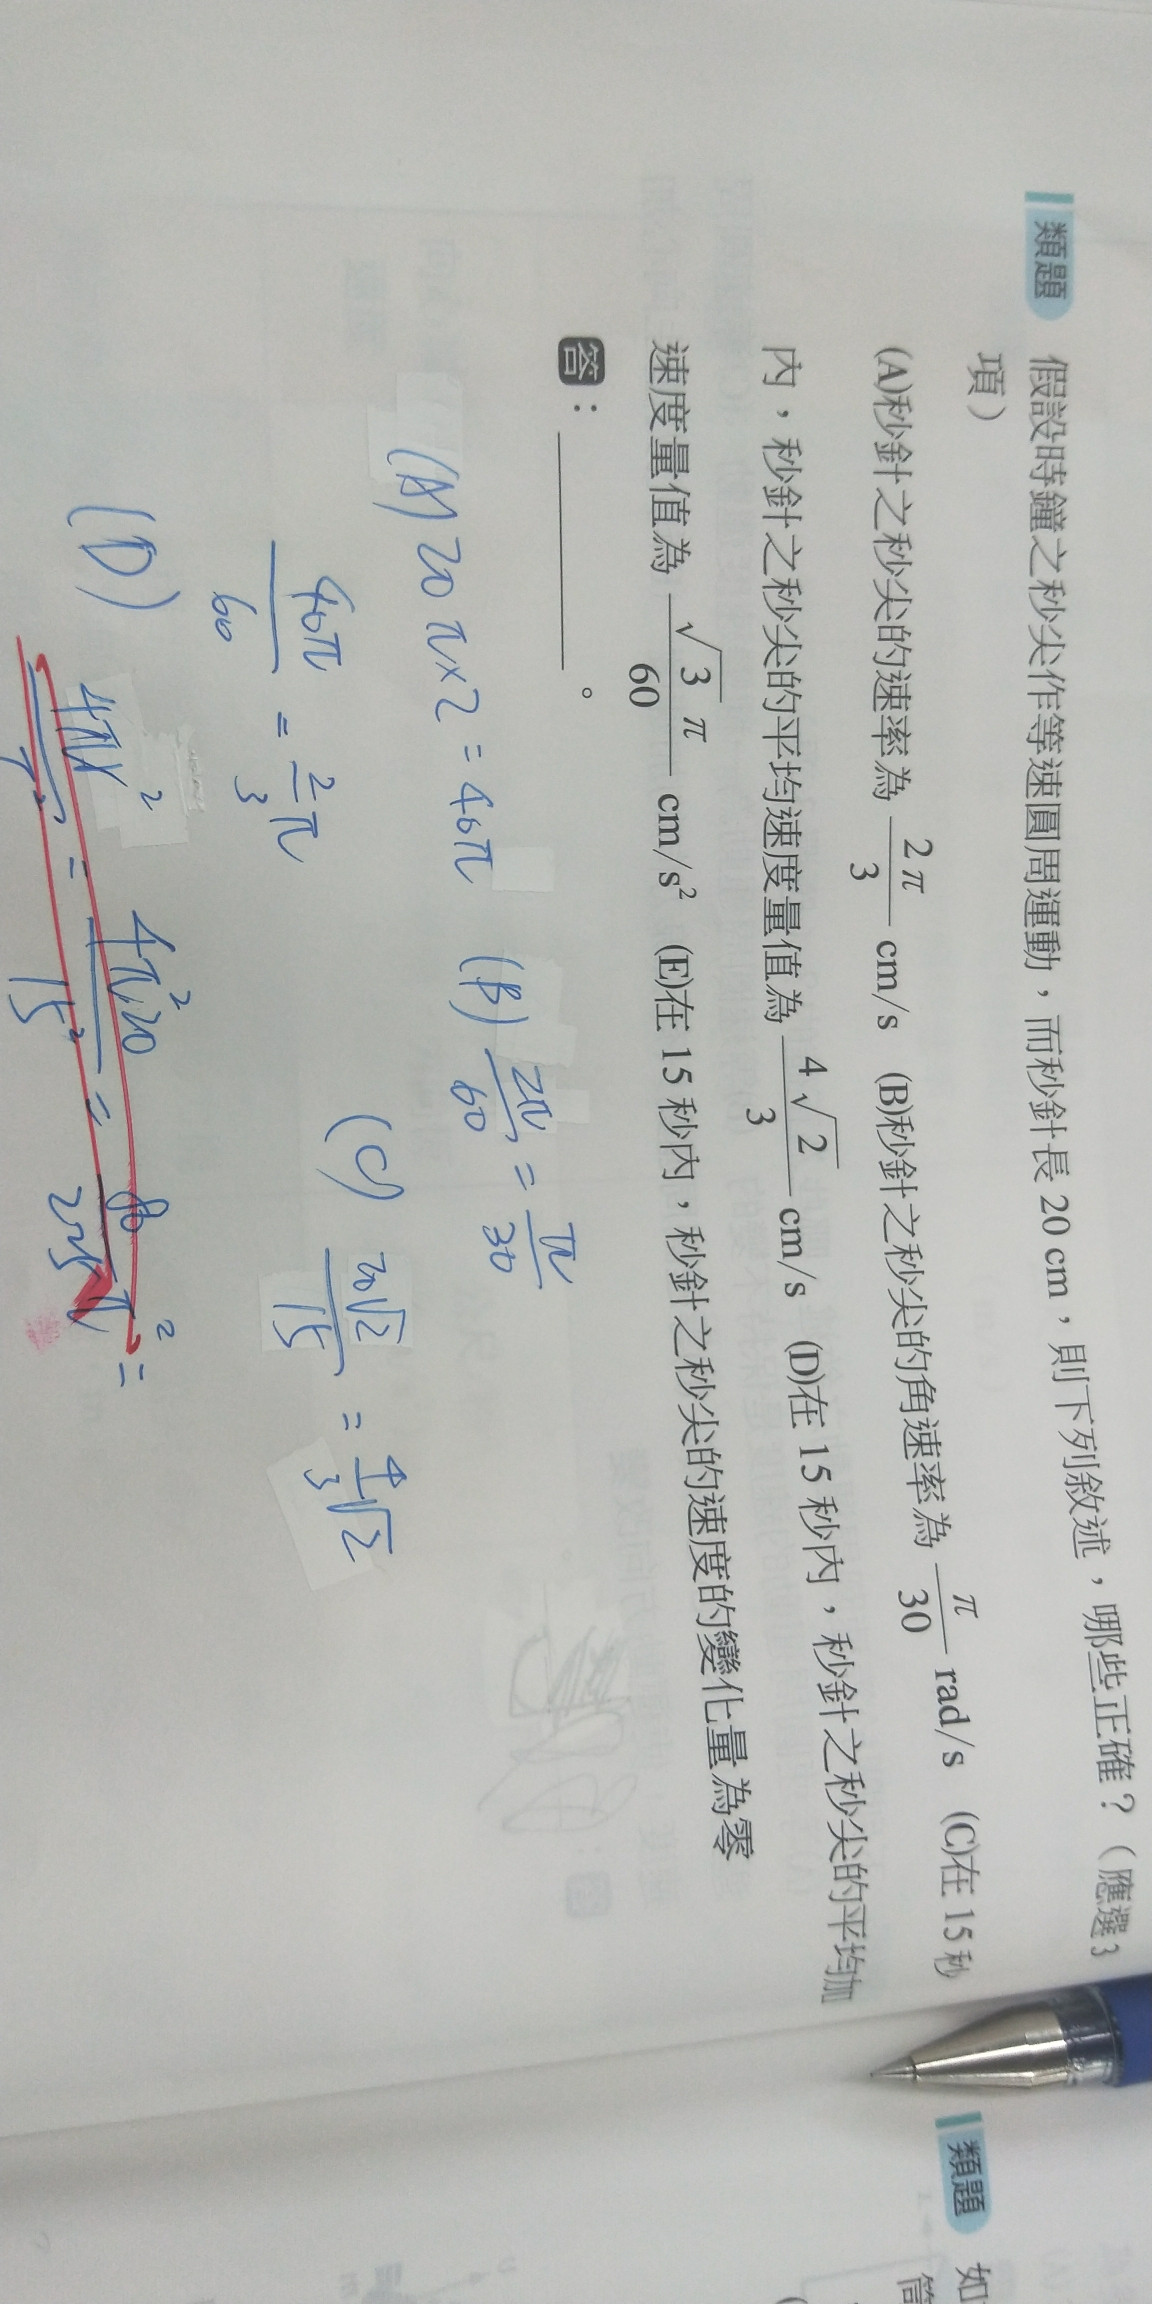 類題 假設時鐘之秒尖作等速圓周運動，而秒針長 20 cm，則下列敘述，哪些正確？（應選 3
項）
(A)秒針之秒尖的速率為 2π/3 cm/s (B)秒針之秒尖的角速率為 π/30 rad/s (C)在 15 秒
內，秒針之秒尖的平均速度量值為 4√2/3 cm/s (D)在 15 秒內，秒針之秒尖的平均加
速度量值為 √3π/60 cm/s² (E)在 15 秒內，秒針之秒尖的速度的變化量為零
答：________。
(A) 20π×2 = 40π
40π/60 = 2/3 π
(B) 2π/60 = π/30
(C) 20√2/15 = 4/3 √2
(D) 4π²r/T² = 4π²20/15² = 80/225 π² =
類題 如